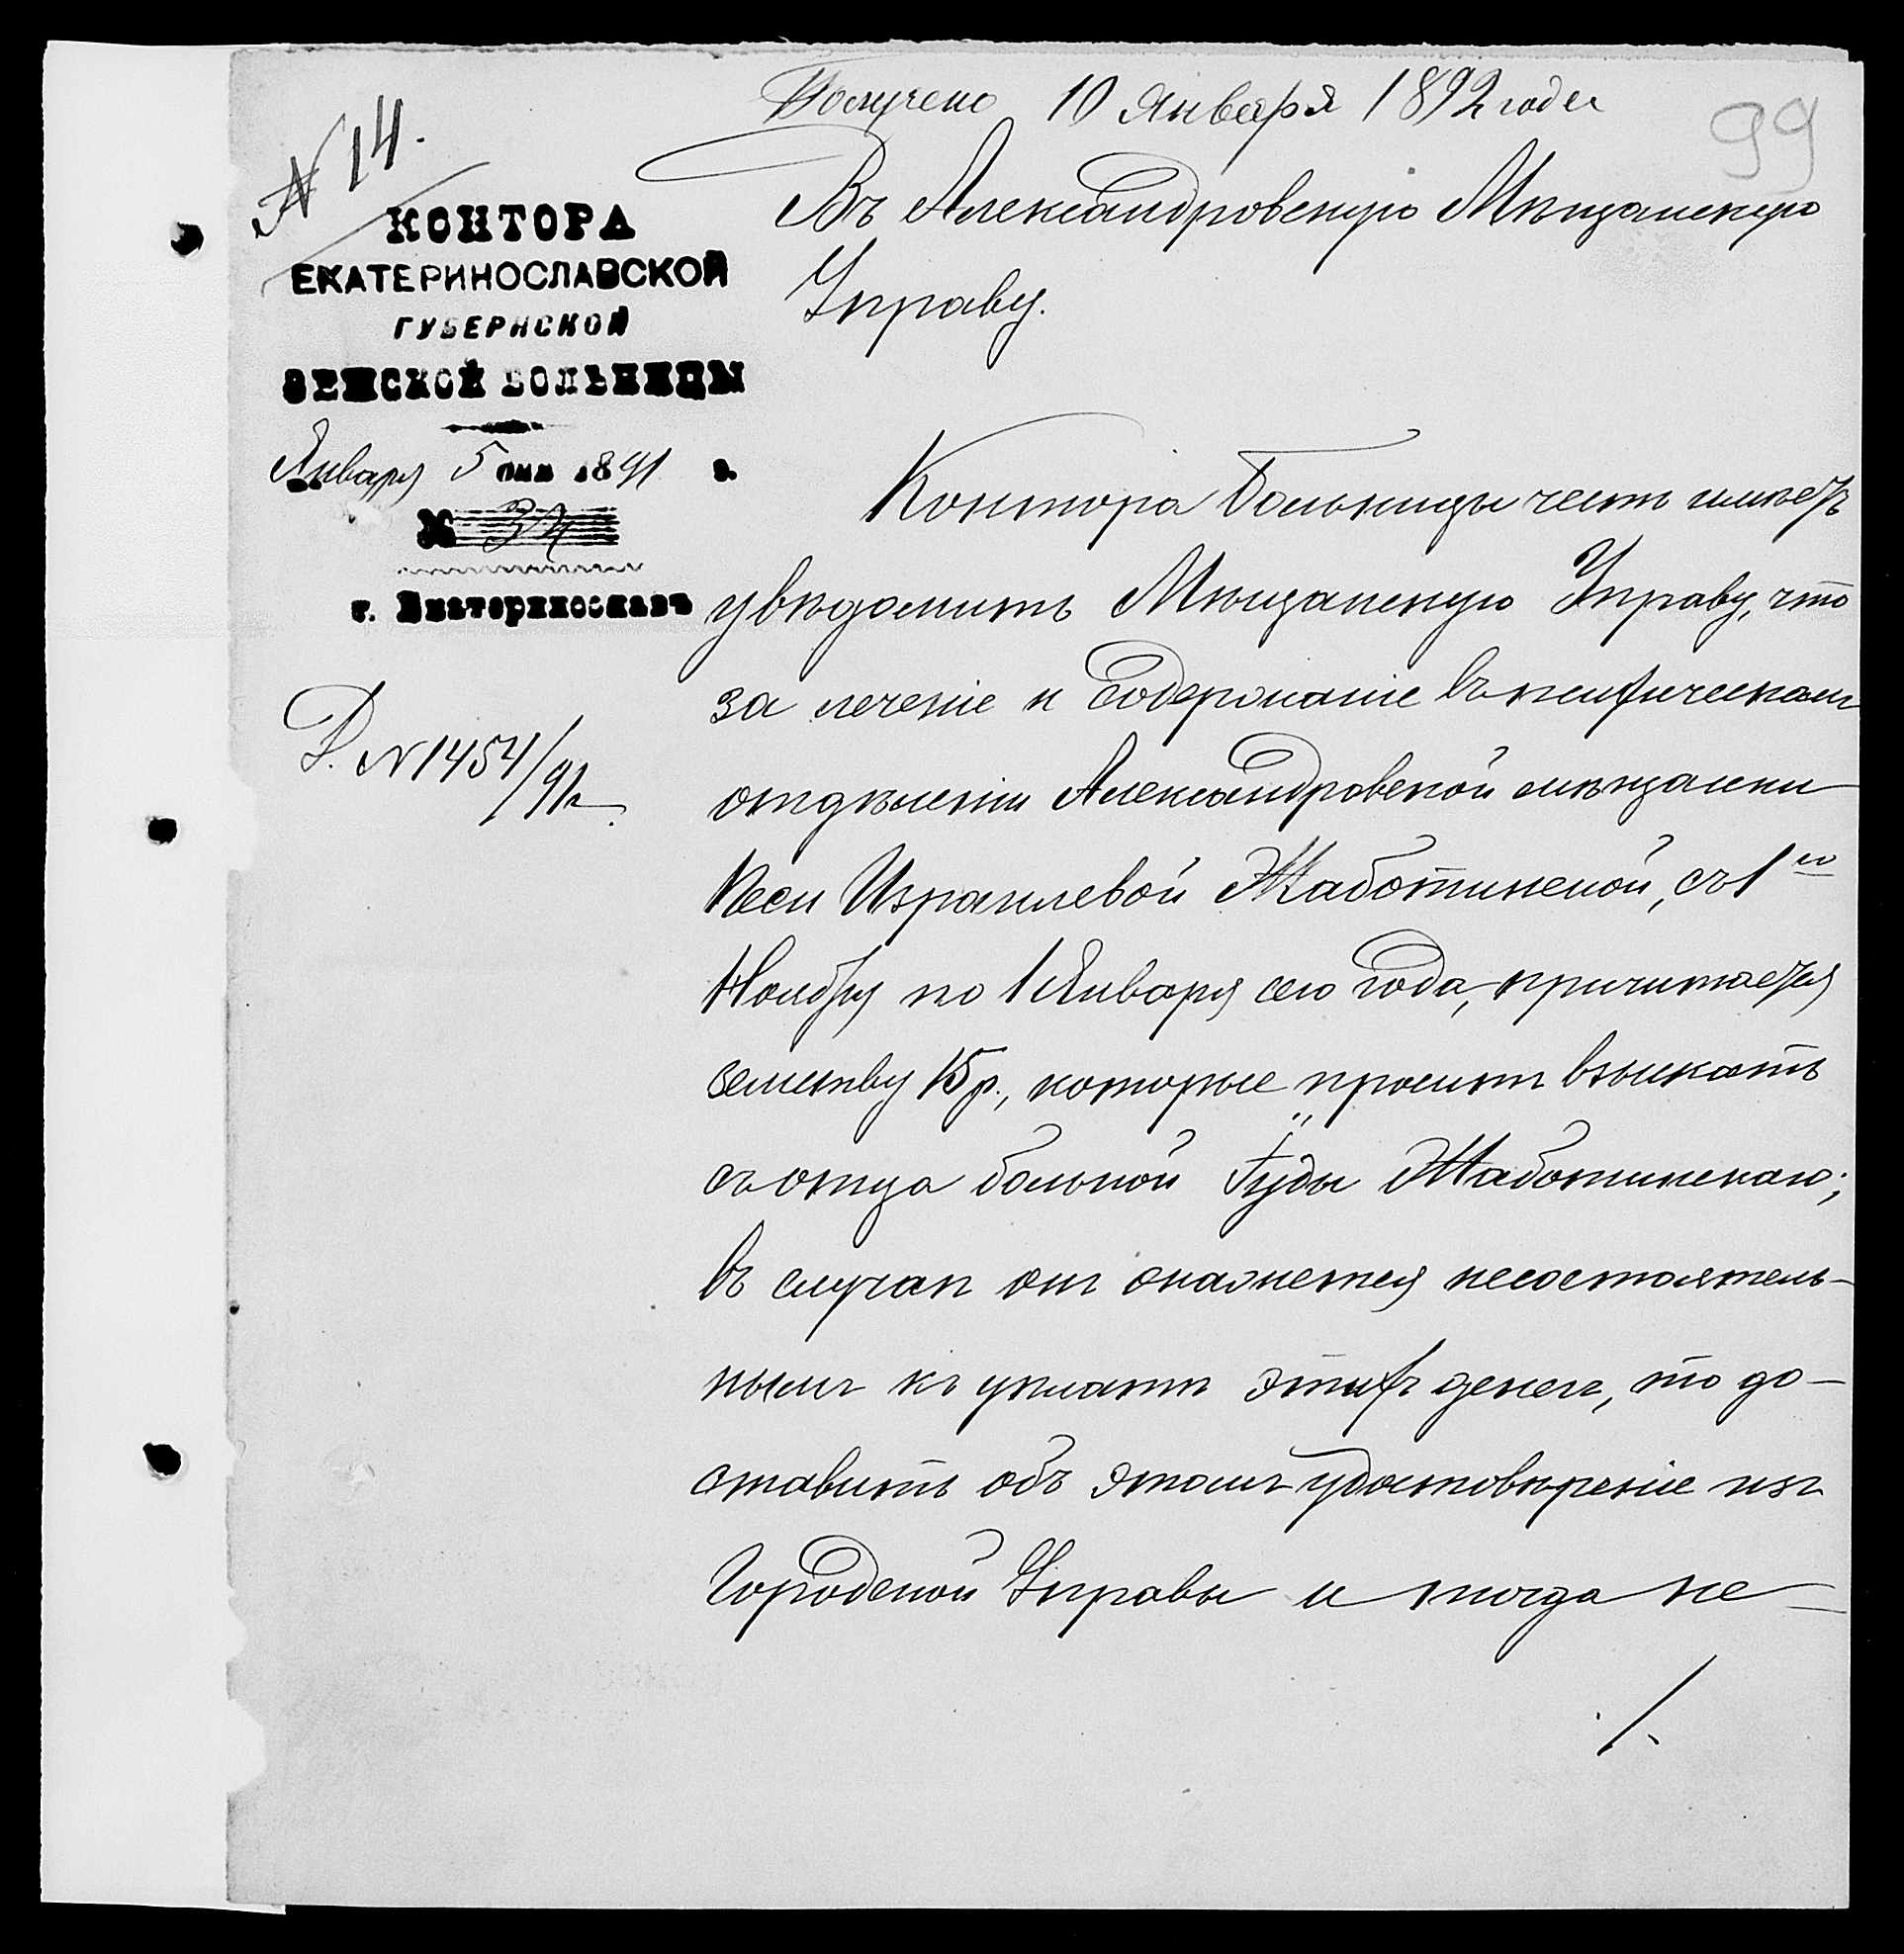 Получено 10 Января 1892 года
99
№ 14.
КОНТОРА
ЕКАТЕРИНОСЛАВСКОЙ
ГУБЕРНСКОЙ
ЗЕМСКОЙ БОЛЬНИЦЫ
Января 5 дня 1891 г.
№ 32
г. Екатеринославъ
Д. №1454/91 г.
Въ Александровскую Мѣщанскую
Управу.
Контора Больницы честь имѣетъ
увѣдомить Мѣщанскую Управу, что
за леченіе и содержаніе въ психическомъ
отдѣленіи Александровской мѣщанки
Песи Израилевой Жаботинской, съ 1го
Ноября по 1 Января сего года, причитается
земству 15 р., которые проситъ взыскать
съ отца больной Іуды Жаботинскаго;
въ случаѣ онъ окажется несостоятель-
нымъ къ уплатѣ этихъ денегъ, то до-
ставить объ этомъ удостовѣреніе изъ
Городской Управы и тогда не-
./.